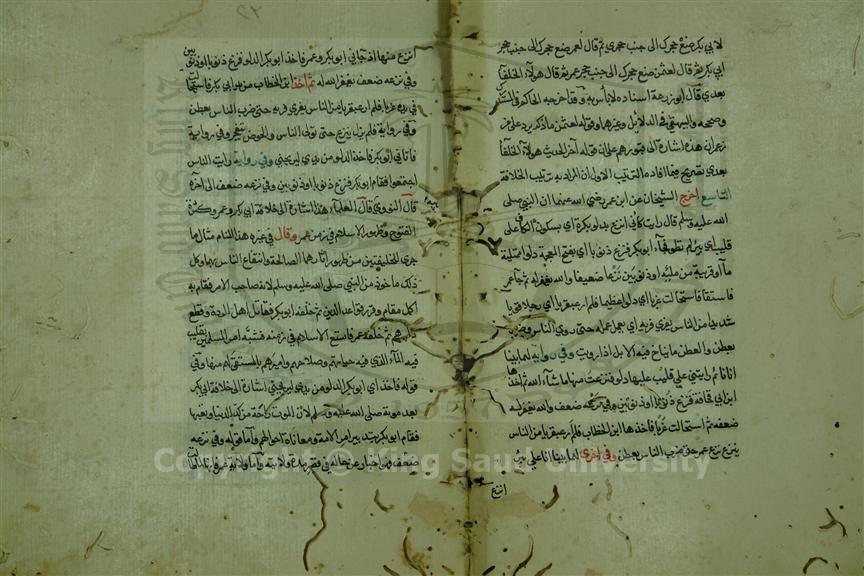 لابي بكر ضع حجرك الى جنب حجري ثم قال لعمر ضع حجرك الى جنب حجر
ابي بكر ثم قال لعثمن ضع حجرك الى جنب حجر عمر ثم قال هولاء الخلفا
بعدي قال ابو زرعة اسناده لا باس به وقد اخرجه الحاكم في المستدرك
وصححه والبيهقي في الدلايل وغيرهما وقوله لعثمن ما ذكر يرد على من
زعم ان هذه اشارة الى قبورهم على ان قوله اخر الحديث هولاء الخلفا
بعدي تصريح فيما افاده الترتيب الاول ان المراد به ترتيب الخلافة
التاسع اخرج الشيخان عن ابن عمر رضي الله عنهما ان النبي صلى
الله عليه وسلم قال رايت كأني انزع بدلو بكرة اي بسكون الكاف على
قليب اي بير لم تطو فجاء ابو بكر فنزع ذنوبا اي بفتح المعجمة دلوا ممتلية
ماء او قريبة من مليه او ذنوبين نزعا ضعيفا والله يغفر له ثم جا عمر
فاستقا فاستحالت غربا اي دلوا عظيما فلم ار عبقريا اي رجلا قويا
شديدا من الناس يفري فريه اي يعمل عمله حتى روي الناس وضربوا
بعطن والعطن ما يناخ فيه الابل اذا رويت وفي رواية لهما بينا
انا نايم رايتني على قليب عليها دلو فنزعت منها ما شاء الله ثم اخذها
ابن ابي قحافة فنزع ذنوبا او ذنوبين وفي نزعه ضعف والله يغفر له
ضعفه ثم استحالت غربا فاخذها ابن الخطاب فلم ار عبقريا من الناس
ينزع نزع عمر حتى ضرب الناس بعطن وفي اخرى لهما بينا انا على بير
انزع
انزع منها اذ جاني ابو بكر وعمر فاخذ ابو بكر الدلو فنزع ذنوبا او ذنوبين
وفي نزعه ضعف يغفر الله له ثم اخذ ابن الخطاب من يد ابي بكر فاستحالت
في يده غربا فلم ار عبقريا من الناس يفري فريه حتى ضرب الناس بعطن
وفي رواية فلم يزل ينزع حتى تولى الناس والحوض يتفجر وفي رواية
فاتاني ابو بكر فاخذ الدلو من يدي ليريحني وفي رواية رايت الناس
اجتمعوا فقام ابو بكر فنزع ذنوبا او ذنوبين وفي نزعه ضعف الى اخره
قال النووي قال العلماء هذا اشارة الى خلافة ابي بكر وعمر وكثرة
الفتوح وظهور الاسلام في زمن عمر وقال في غيره هذا المنام مثال لما
جرى للخليفتين من ظهور اثارهما الصالحة وانتفاع الناس بهما وكل
ذلك ماخوذ من النبي صلى الله عليه وسلم لانه صاحب الامر فقام به
اكمل مقام وقرر قواعد الدين ثم خلفه ابو بكر فقاتل اهل الردة وقطع
دابرهم ثم خلفه عمر فاتسع الاسلام في زمنه فشبه امر المسلمين بقليب
فيه الماء الذي فيه حياتهم وصلاحهم واميرهم بالمستقي لهم منها وفي
قوله فاخذ اي ابو بكر الدلو من يدي ليريحني اشارة الى خلافة ابي بكر
بعد موته صلى الله عليه وسلم لان الموت راحة من كد الدنيا وتعبها
فقام ابو بكر بتدبير امر الامة ومعاناة احوالهم واما قوله وفي نزعه
ضعف فهو اخبار عن حاله في قصر مدة ولايته واما ولاية عمر فانها لما طالت
Copyright © King Saud University